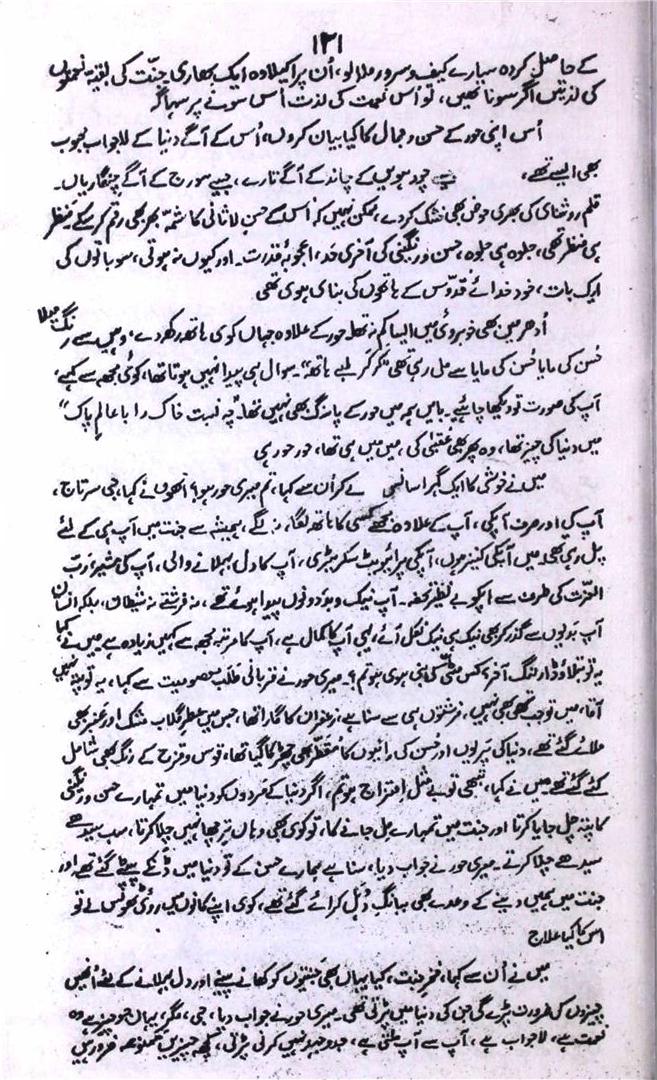 ۱۲۱
کے حاصل کردہ سارے کیف و سرور ملا لو، اُن پر اکیلا وہ ایک بھاری جنّت کی بقیہ نعمتوں
کی لذتیں اگر سونا تھیں، تو اُس نعمت کی لذت اُس سونے پر سہاگہ
اُس اپنی حور کے حسن و جمال کا کیا بیان کروں، اُس کے آگے دنیا کے لاجواب محبوب
بھی ایسے تھے، جیسے چودھویں کے چاند کے آگے تارے، جیسے سورج کے آگے چنگاریاں۔
قلم روشنائی کی بھری حوض بھی خشک کر دے، ممکن نہیں کہ اس کے حسنِ لاثانی کا شمّہ بھر بھی رقم کر سکے
ہی منظر تھی، جلوہ ہی جلوہ، حسن و رنگینی کی آخری حد، اعجوبۂ قدرت۔ اور کیوں نہ ہوتی، سو باتوں کی
ایک بات، خود خدائے قدّوس کے ہاتھوں کی بنائی ہوئی تھی
اُدھر میں بھی خوبروئی میں ایسا کم نہ تھا۔ حور کے علاوہ جہاں کوئی ہاتھ رکھ دے، وہیں سے رنگ میلا
حُسن کی مایا حُسن کی مایا سے مل رہی تھی "کر کر لمبے ہاتھ"۔ سوال ہی پیدا نہیں ہوتا تھا، کوئی مجھ سے کہے،
آپ کی صورت تو دیکھا چاہئے۔ بایں ہمہ میں حور کے پاسنگ بھی نہیں تھا۔ "چہ نسبت خاک را با عالم پاک"
میں دنیا کی چیز تھا، وہ پھر بھی عقبیٰ کی، میں میں ہی تھا، حور حور ہی
میں نے خوشی کا ایک گہرا سانس لے کر اُن سے کہا، تم میری حور ہو؟ انھوں نے کہا، جی سرتاج،
آپ کی اور صرف آپکی، آپ کے علاوہ مجھے کسی کا ہاتھ لگا، نہ لگے، ہمیشہ سے جنت میں آپ ہی کے لئے
پل رہی تھی۔ میں آپکی کنیز ہوں، آپکی پرائیویٹ سکریٹری، آپ کا دل بہلانے والی، آپ کی مشیر، ربّ
العزّت کی طرف سے آپکو بے نظیر تحفہ۔ آپ نیک و بد دونوں پیدا ہوئے تھے، نہ فرشتے نہ شیطان، بلکہ انسان
آپ بدیوں سے گذر کر بھی نیک ہی نیک نکل آئے، یہی آپ کا کمال ہے، آپ کا مرتبہ مجھ سے کہیں زیادہ ہے میں نے کہا
یہ تو بتلاؤ ڈارلنگ آخر کس مٹّی کی بنی ہوئی ہو تم؟۔ میری حور نے قربانی طلب معصومیت سے کہا، یہ تو پتہ نہیں
آقا، میں تو جب تھی بھی نہیں، فرشتوں ہی سے سنا ہے، زعفران کا گارا تھا، جس میں عطرِ گلاب مشک اور عنبر بھی
ملائے گئے تھے، دنیا کی پریوں اور حُسن کی رانیوں کا مُقطّر بھی چھڑکا گیا تھا، قوس و قزح کے رنگ بھی شامل
کئے گئے تھے۔ میں نے کہا، تبھی تو بے مثل امتزاج ہو تم، اگر دنیا کے مردوں کو دنیا میں تمہارے حسن و رنگینی
کا پتہ چل جایا کرتا اور جنت میں تمہارے مل جانے کا، تو کوئی بھی وہاں ترچھا نہیں چلا کرتا، سب سیدھے
سیدھے چلا کرتے۔ میری حور نے جواب دیا، سنا ہے ہمارے حسن کے تو دنیا میں ڈنکے پیٹے گئے تھے اور
جنت میں ہمیں دینے کے وعدے بھی ببانگِ دُہل کرائے گئے تھے، کوئی اپنے کانوں میں روئی ٹھونس لے تو
اس کا کیا علاج
میں نے اُن سے کہا، فخرِ جنت، کیا یہاں بھی جنتیوں کو کھانے پینے اور دل بہلانے کے لئے اُنھیں
چیزوں کی ضرورت پڑے گی جن کی دنیا میں پڑتی تھی۔ میری حور نے جواب دیا، جی، مگر، یہاں جو چیز ہے وہ
نعمت ہے، لاجواب ہے، آپ سے آپ ملتی ہے، جدوجہد نہیں کرنی پڑتی، کچھ چیزیں